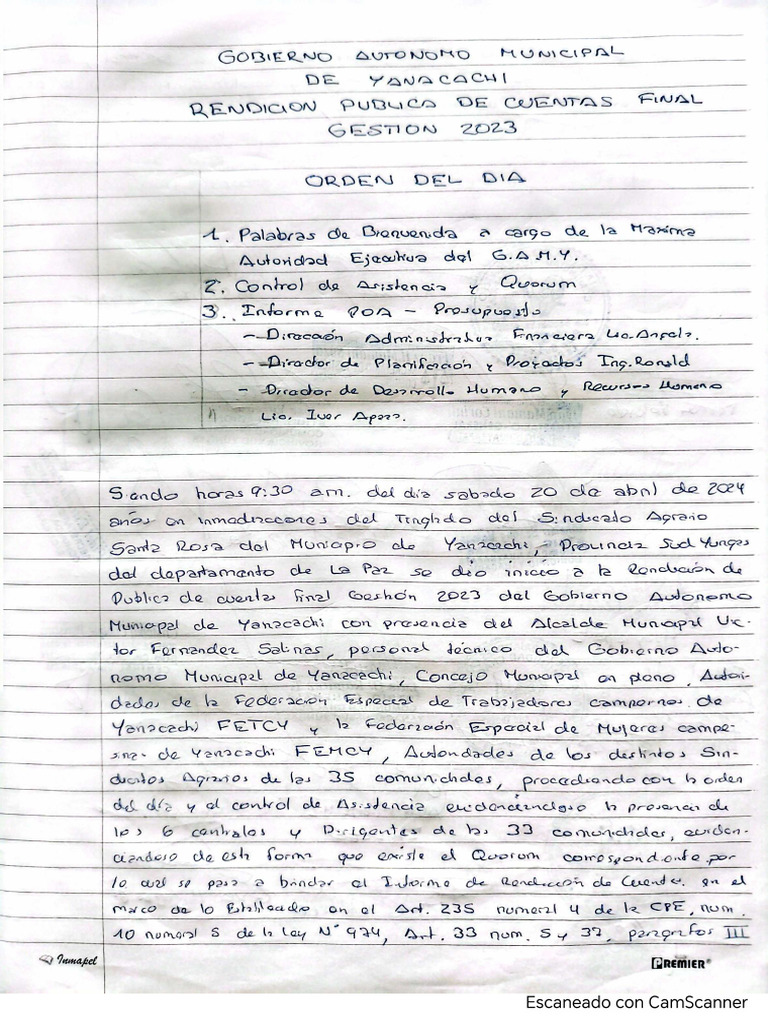 GOBIERNO AUTONOMO MUNICIPAL
DE YANACACHI
RENDICION PUBLICA DE CUENTAS FINAL
GESTION 2023
ORDEN DEL DIA
1. Palabras de Bienvenida a cargo de la Maxima
Autoridad Ejecutiva del G.A.M.Y.
2. Control de Asistencia y Quorum
3. Informe POA - Presupuesto
- Dirección Administrativa Financiera Lic. Angela.
- Director de Planificación y Proyectos Ing. Ronald
- Director de Desarrollo Humano y Recursos Humano
Lic. Iver Apaza.
Siendo horas 9:30 am. del día sabado 20 de abril de 2024
años en inmediaciones del Tinglado del Sindicato Agrario
Santa Rosa del Municipio de Yanacachi, Provincia Sud Yungas
del departamento de La Paz se dio inicio a la Rendición de
Publica de cuentas final Gestión 2023 del Gobierno Autonomo
Municipal de Yanacachi con presencia del Alcalde Municipal Vic-
tor Fernandez Salinas, personal técnico del Gobierno Auto-
nomo Municipal de Yanacachi, Concejo Municipal en pleno, Autori-
dades de la Federación Especial de Trabajadores campesinos de
Yanacachi FETCY y la Federación Especial de Mujeres campe-
sinas de Yanacachi FEMCY, Autoridades de los distintos Sin-
dicatos Agrarios de las 35 comunidades, procediendo con la orden
del día y el control de Asistencia evidenciandose la presencia de
los 6 centrales y Dirigentes de las 33 comunidades, eviden-
ciandose de esta forma que existe el Quorum correspondiente por
lo cual se pasa a brindar el Informe de Rendición de Cuentas. en el
marco de lo Establecido en el Art. 235 numeral 4 de la CPE, num.
10 numeral 5 de la Ley N° 974, Art. 33 num. 5 y 37, paragrafos III
Inmapel
PREMIER
Escaneado con CamScanner